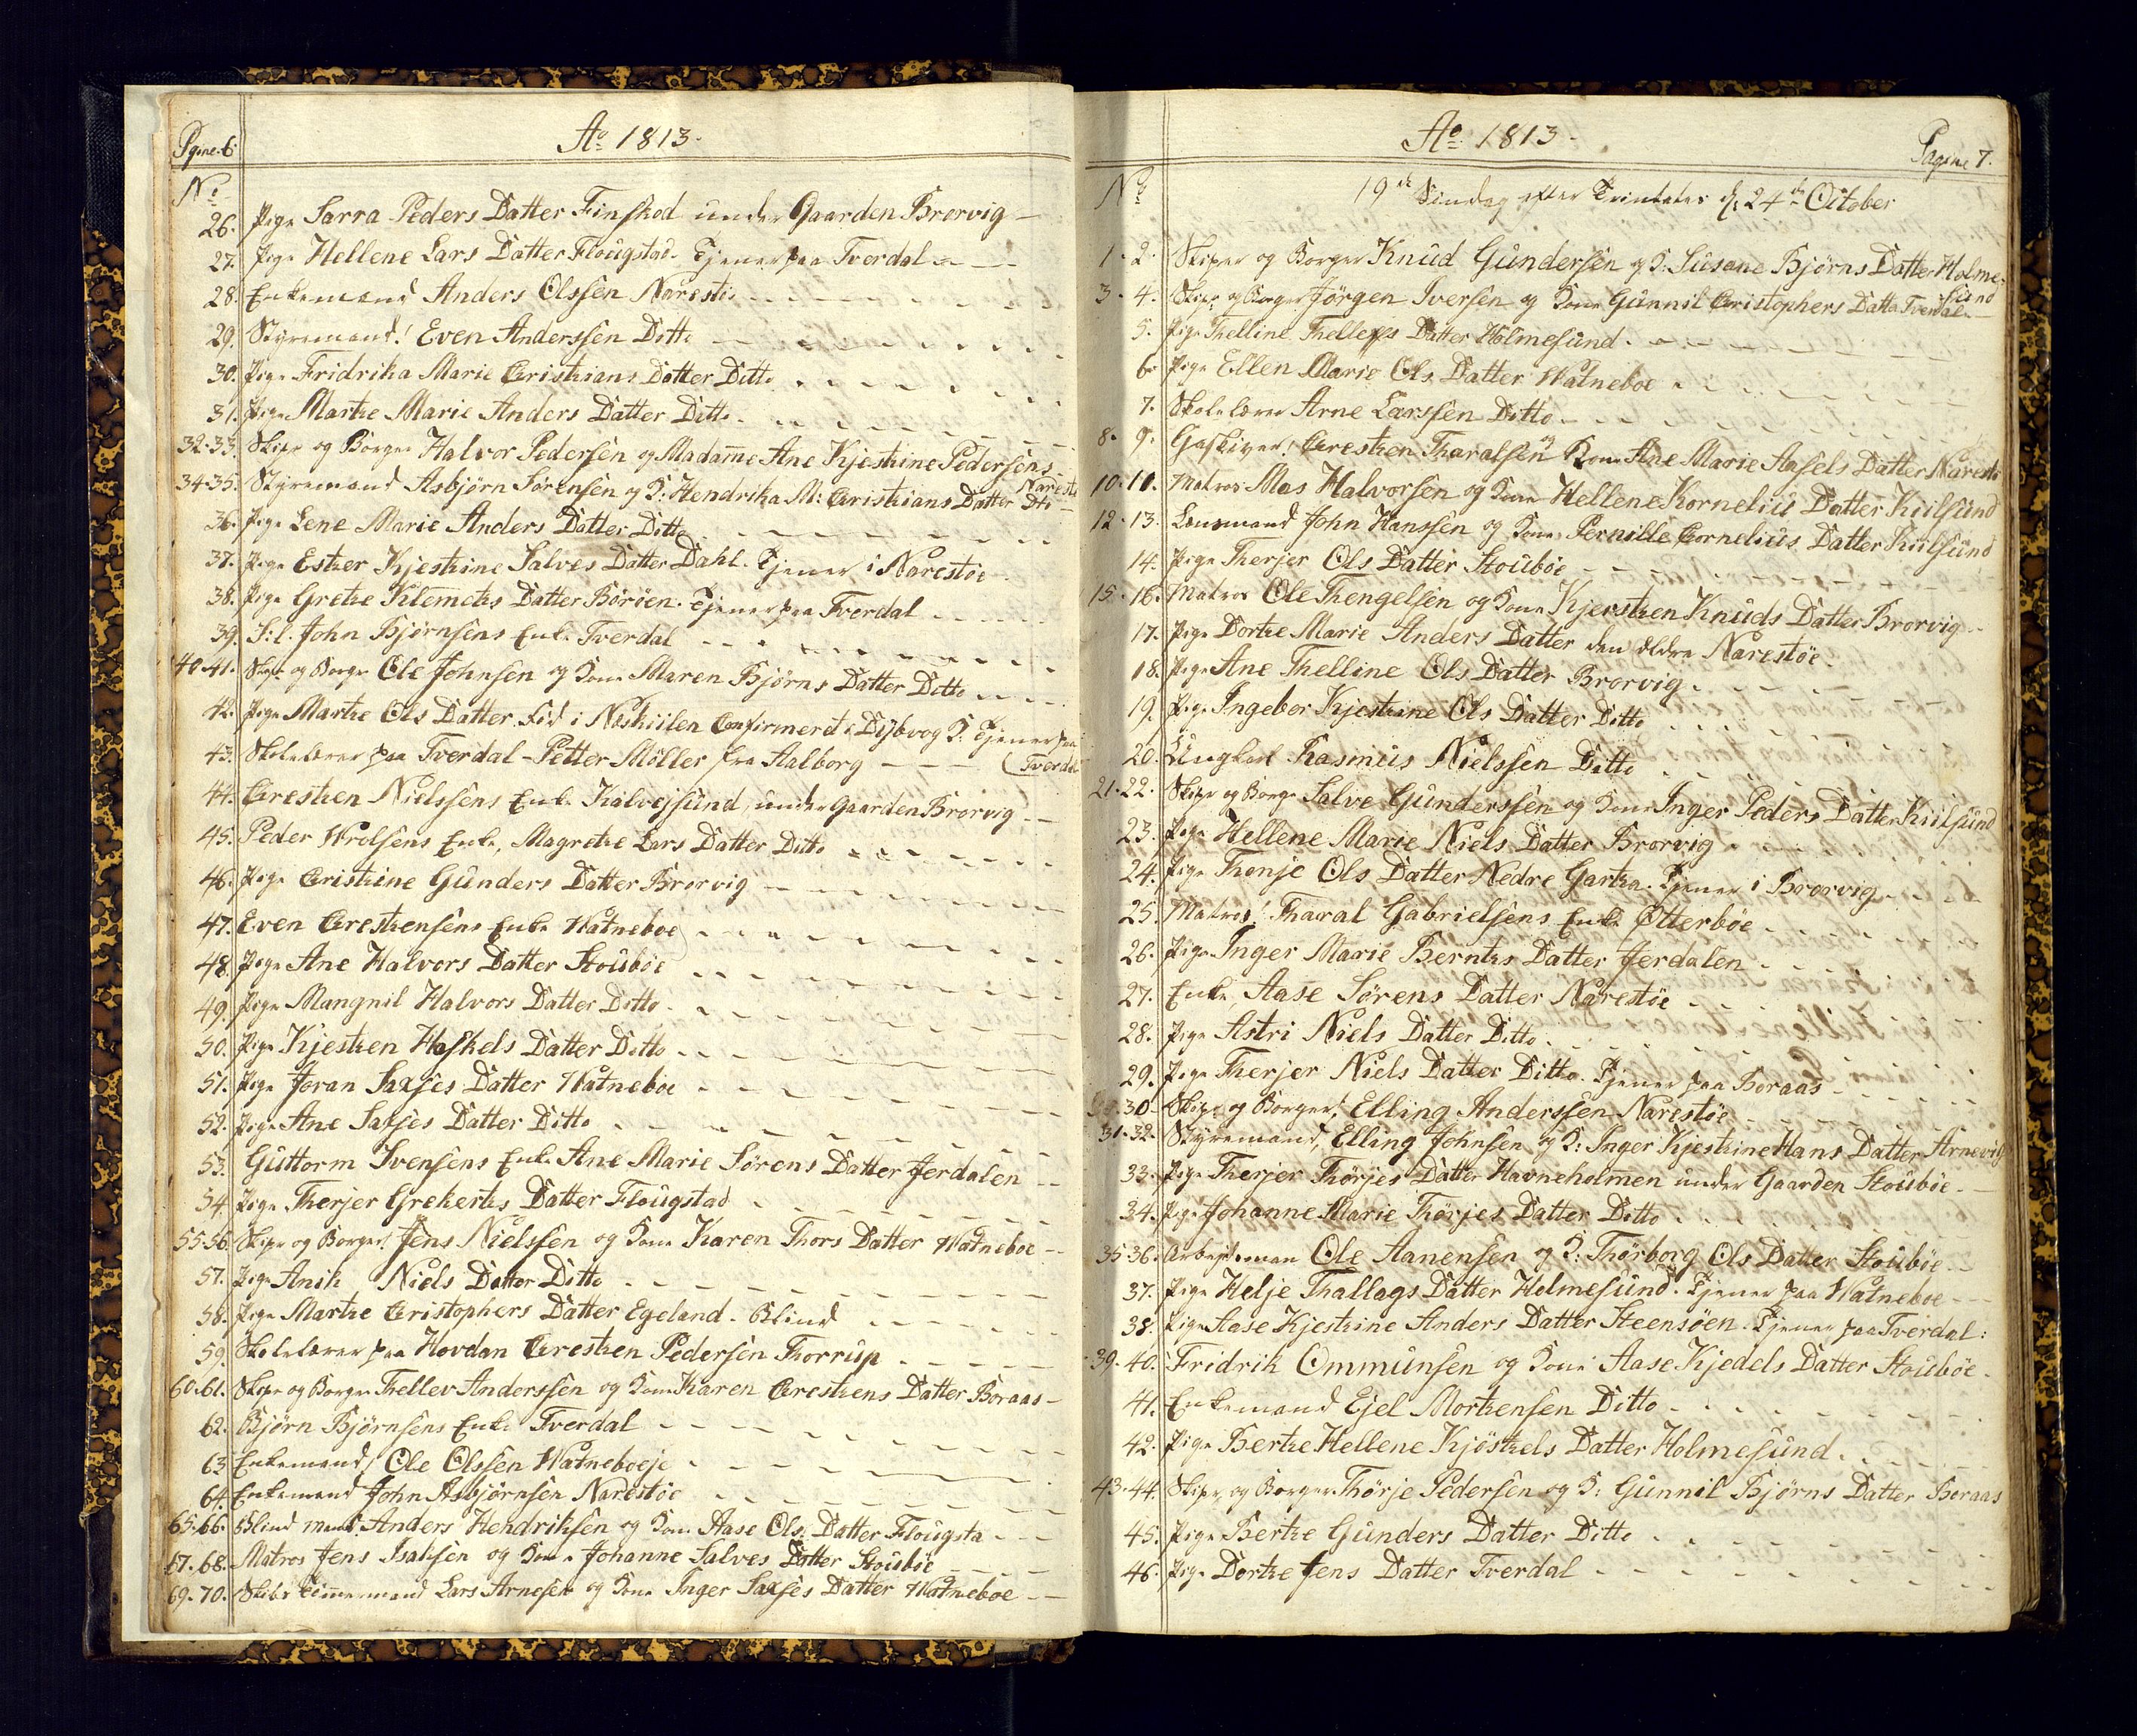 Pgine. 6.
Ao 1813.
No
26. Pige Sarra Peders Datter Finskod under Gaarden Brorvig
27. Pige Hellene Lars Datter Flougstad. Tjener paa Tverdal
28. Enkemand Anders Olssen Narestöe
29. Styremand! Even Anderssen Ditto
30. Pige Fridrika Marie Cristians Datter Ditto
31. Pige Marthe Marie Anders Datter Ditto
32-33. Skipr og Borger Halvor Pedersen og Madame Ane Kjestine Pedersens Narestö
34-35. Styremand Asbjörn Sörensen og K: Hendrika M: Cristians Datter Dto
36. Pige Lene Marie Anders Datter Ditto
37. Pige Ester Kjestine Salves Datter Dahl. Tjener i Narestöe
38. Pige Grethe Klemets Datter Böröen. Tjener paa Tverdal
39. S:l. John Bjørnsens Enke Tverdal
40-41. Skipr og Borger Ole Johnsen og Kone Maren Bjørns Datter Ditto
42. Pige Marthe Ols Datter Föd i Næskiilen Confirmert i Dijbvog K. Tjener paa Tverdal
43. Skolelærer paa Tverdal Petter Möller fra Aalborg
44. Cresten Nielssens Enke Kalvejsund, under Gaarden Brorvig
45. Peder Wrolsens Enke, Magrethe Lars Datter Ditto
46. Pige Cristine Gunders Datter Brorvig
47. Even Crestensens Enke Watneboe
48. Pige Ane Halvors Datter Stoubøe
49. Pige Mangnil Halvors Datter Ditto
50. Pige Kjesten Haskels Datter Ditto
51. Pige Joran Saxses Datter Watneböe
52. Pige Ane Saxses Datter Ditto
53. Guttorm Svensens Enke Ane Marie Sörens Datter Jerdalen
54. Pige Therjer Grekerts Datter Flougstad
55-56. Skipr og Borger! Jens Nielssen og Kone Karen Thors Datter Watneboe
57. Pige Anik Niels Datter Ditto
58. Pige Marthe Cristophers Datter Egeland. Blind
59. Skolelærer paa Hovdan Cresten Pedersen Thorrup
60-61. Skipr og Borger Thellev Anderssen og Kone Karen Crestens Datter Boraas
62. Bjørn Bjørnsens Enke Tverdal
63 Enkemand, Ole Olssen Watneboeje
64. Enkemand John Asbjørnsen Narestöe
65-66. Blind mand. Anders Hendriksen og Kone Aase Ols Datter Flougsta
67-68. Matros Jens Isaksen og Kone Johanne Salves Datter Stouböe
69-70. Skibs Timmermand Lars Arnesen og Kone Inger Saxses Datter Watneboe
Ao 1813.
Pagine 7.
No
19de Sindag efter Trinitatis d: 24de October
1-2. Skiper og Borger Knud Gundersen og K: Susane Bjørns Datter Holmesund
3-4. Skipr og Borger Jörgen Iversen og Kone Gunnil Cristophers Datter Tverdalen
5. Pige Thelline Thelleffs Datter Holmesund
6. Pige Ellen Marie Ols Datter Watneboe
7. Skolelærer Arne Larssen Ditto
8-9. Gastiver! Cresten Tharalsen og Kone Ane Marie Aksels Datter Narestö
10-11. Matros Mas Halvorsen og Kone Hellene Kornelii Datter Kiilsund
12-13. Lensmand John Hanssen og Kone Pernille Cornelius Datter Kiilsund
14. Pige Therjer Ols Datter Stouböe
15-16. Matros Ole Thengelsen og Kone Kjersten Knuds Datter Brorvig
17. Pige Dorthe Marie Anders Datter den ældre Narestöe
18. Pige Ane Thelline Ols Datter Brorvig
19. Pige Ingebor Kjestine Ols Datter Ditto
20. Ungkarl Rasmus Nielssen Ditto
21-22. Skipr og Borger Salve Gunderssen og Kone Inger Peders Datter Kiilsund
23. Pige Hellene Marie Niels Datter Brorvig
24. Pige Thonje Ols Datter Nedre Garta. Tjener i Brorvig
25. Matros! Tharal Gabrielsens Enke Otterböe
26. Pige Inger Marie Bernts Datter Jerdalen
27. Enke, Aase Sörens Datter Narestöe
28. Pige Astri Niels Datter Ditto
29. Pige Therjer Niels Datter Ditto. Tjener paa Boraas
30. Skipr og Borger, Elling Anderssen Narestöe
31-32. Styremand, Elling Johnsen og K: Inger Kjestine Hans Datter Arnevig
33. Pige Therjer Thörjes Datter Havneholmen under Gaarden Stouböe
34. Pige Johanne Marie Thörjes Datter Ditto
35 36. Arbejdsman Ole Aanensen og K: Thorborg Ols Datter Stouböe
37. Pige Helje Thallags Datter Holmesund. Tjener paa Watneboe
38. Pige Aase Kjestine Anders Datter Steensöen. Tjener paa Tverdal:
39-40. Fridrik Ommunsen og Kone Aase Kjedels Datter Stouböe
41. Enkemand Ejel Mortensen Ditto
42. Pige Berthe Hellene Kjöstels Datter Holmesund
43-44. Skipr og Borger Thörje Pedersen og K: Gunnil Bjørns Datter Boraas
45. Pige Berthe Gunders Datter Ditto
46. Pige Dorthe Jens Datter Tverdal